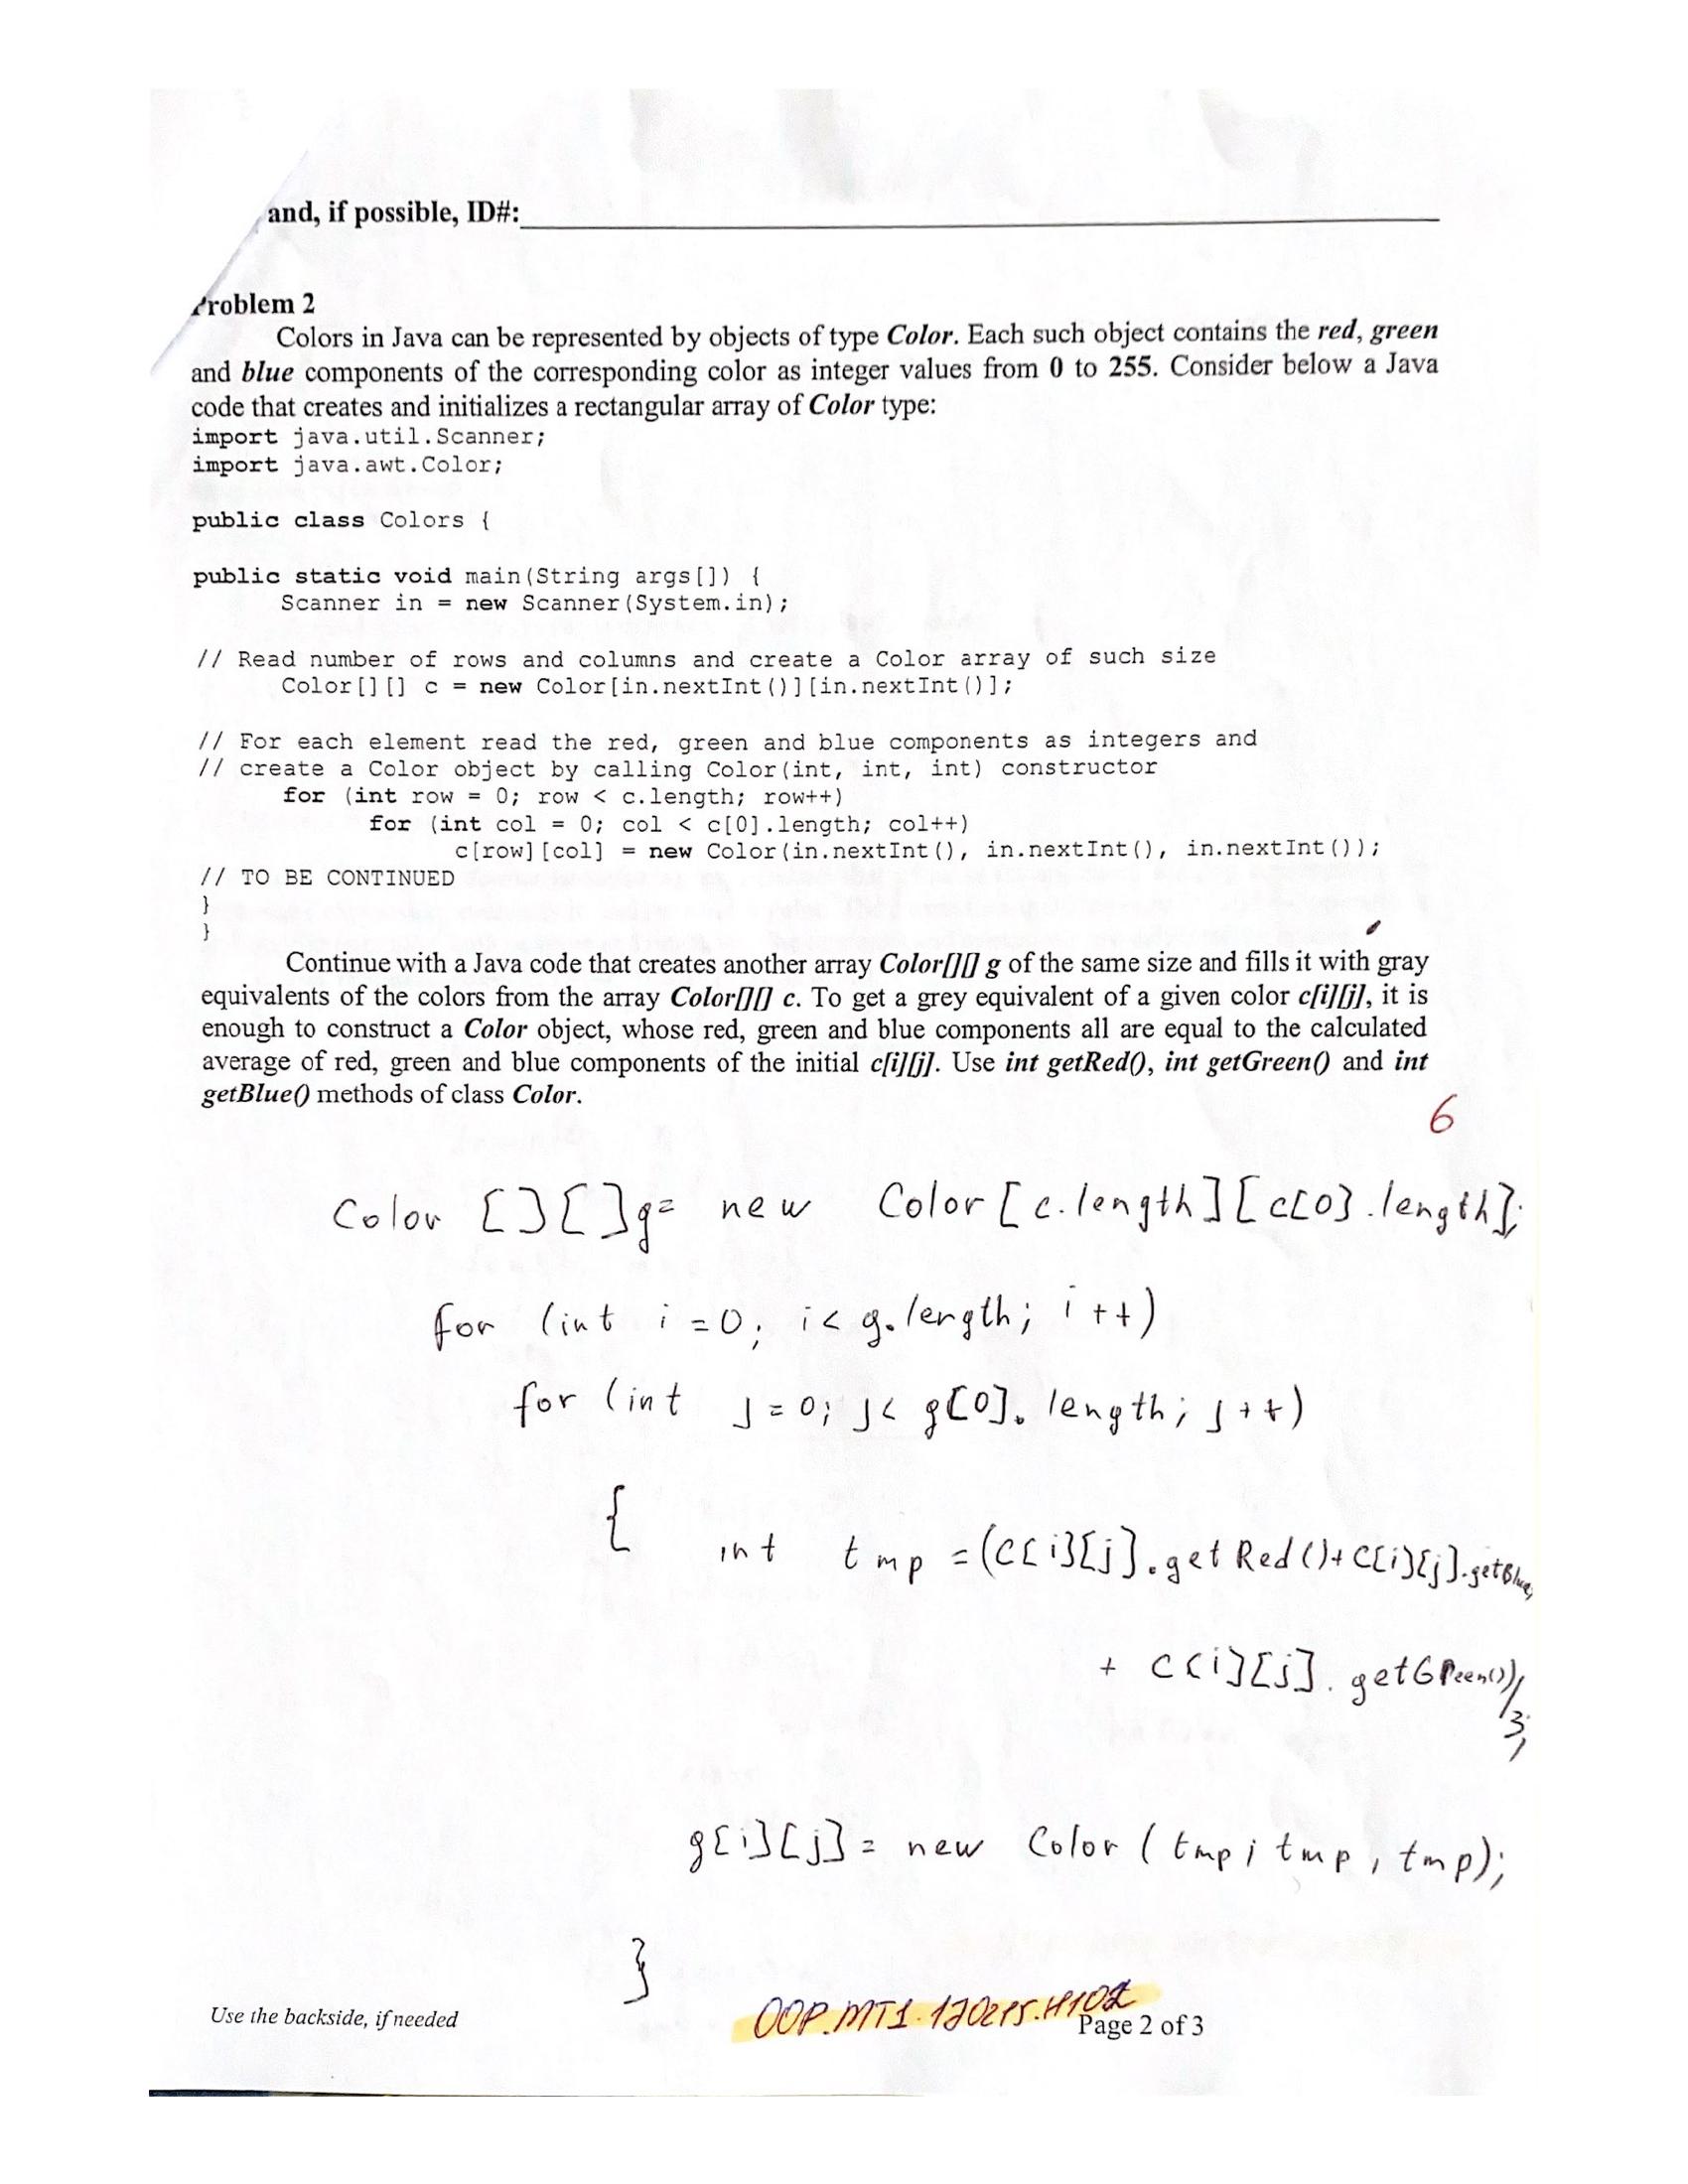 and, if possible, ID#:
Problem 2
Colors in Java can be represented by objects of type Color. Each such object contains the red, green
and blue components of the corresponding color as integer values from 0 to 255. Consider below a Java
code that creates and initializes a rectangular array of Color type:
import java.util.Scanner;
import java.awt.Color;
public class Colors {
public static void main(String args[]) {
Scanner in = new Scanner(System.in);
// Read number of rows and columns and create a Color array of such size
Color[][] c = new Color[in.nextInt()][in.nextInt()];
// For each element read the red, green and blue components as integers and
// create a Color object by calling Color(int, int, int) constructor
for (int row = 0; row < c.length; row++)
for (int col = 0; col < c[0].length; col++)
c[row][col] = new Color(in.nextInt(), in.nextInt(), in.nextInt());
// TO BE CONTINUED
}
}
Continue with a Java code that creates another array Color[][] g of the same size and fills it with gray
equivalents of the colors from the array Color[][] c. To get a grey equivalent of a given color c[i][j], it is
enough to construct a Color object, whose red, green and blue components all are equal to the calculated
average of red, green and blue components of the initial c[i][j]. Use int getRed(), int getGreen() and int
getBlue() methods of class Color.
6
Color [][]g= new Color[c.length][c[0].length];
for (int i=0; i< g.length; i++)
for (int j=0; j< g[0].length; j++)
{ int tmp =(c[i][j].getRed()+c[i][j].getBlue
+ c[i][j].getGreen())/3;
g[i][j]= new Color (tmp; tmp, tmp);
}
Use the backside, if needed
OOP.MT1.
Page 2 of 3